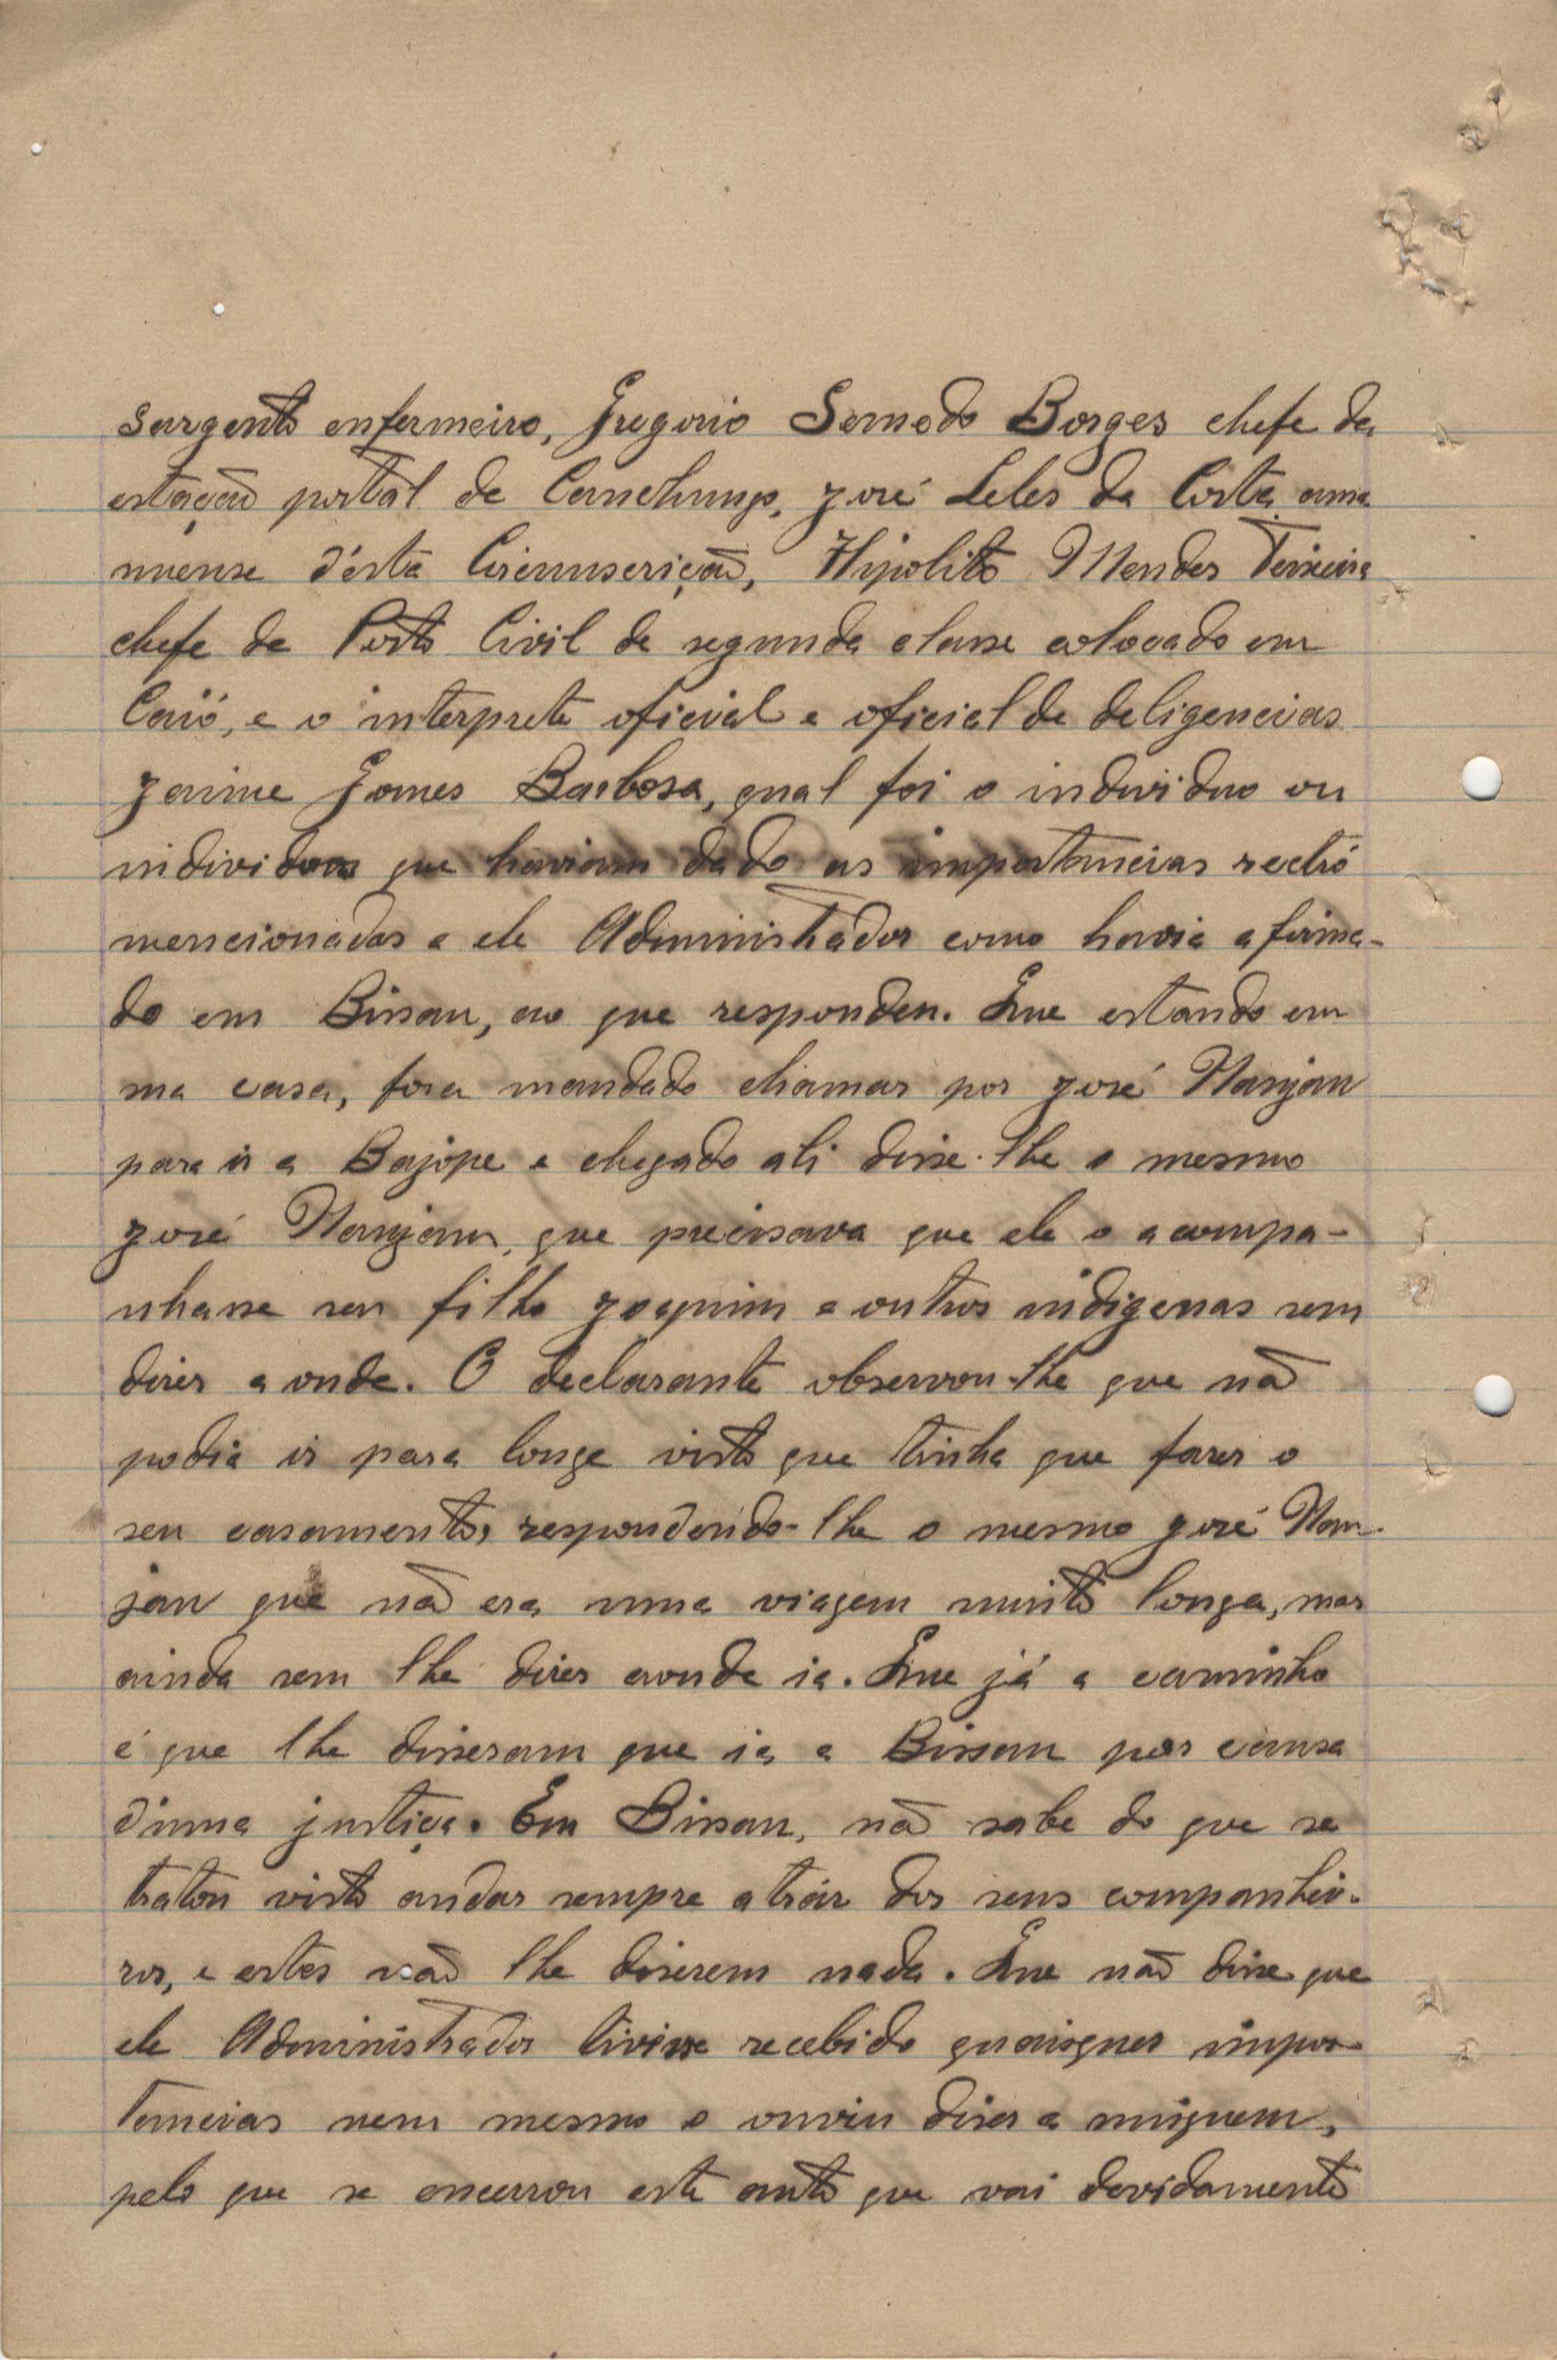 sargento enfermeiro, Gregorio Semedo Borges chefe da
estação postal de Canchungo, José Leles da Costa ama
nuense d'esta Circunscrição, Hipolito Mendes Teixeira
chefe de Posto Civil de segunda classe colocado em
Caió, e o interprete oficial e oficial de deligencias
Jaime Gomes Barbosa, qual foi o individuo ou
individuos que haviam dado as importancias rectró
mencionadas a ele Administrador como havia afirma-
do em Bissau, ao que respondeu. Que estando em
sua casa, fora mandado chamar por José Nanjau
para ir a Bajope e chegado ali disse-lhe o mesmo
José Nanjau, que precisava que ele o acompa-
nhasse seu filho Joaquim e outros indigenas sem
dizer aonde. O declarante observou-lhe que não
podia ir para longe visto que tinha que fazer o
seu casamento, respondendo-lhe o mesmo José Nan-
jau que não era uma viagem muito longa, mas
ainda sem lhe dizer aonde ia. Que já a caminho
é que lhe disseram que ia a Bissau por causa
d'uma justiça. Em Bissau, não sabe do que se
tratou visto andar sempre atráz dos seus companhei-
ros, e estes não lhe dizerem nada. Que não disse que
ele Administrador tivisse recebido quaisquer impor-
tancias nem mesmo o ouviu dizer a ninguem,
pelo que se encerrou este auto que vai devidamente